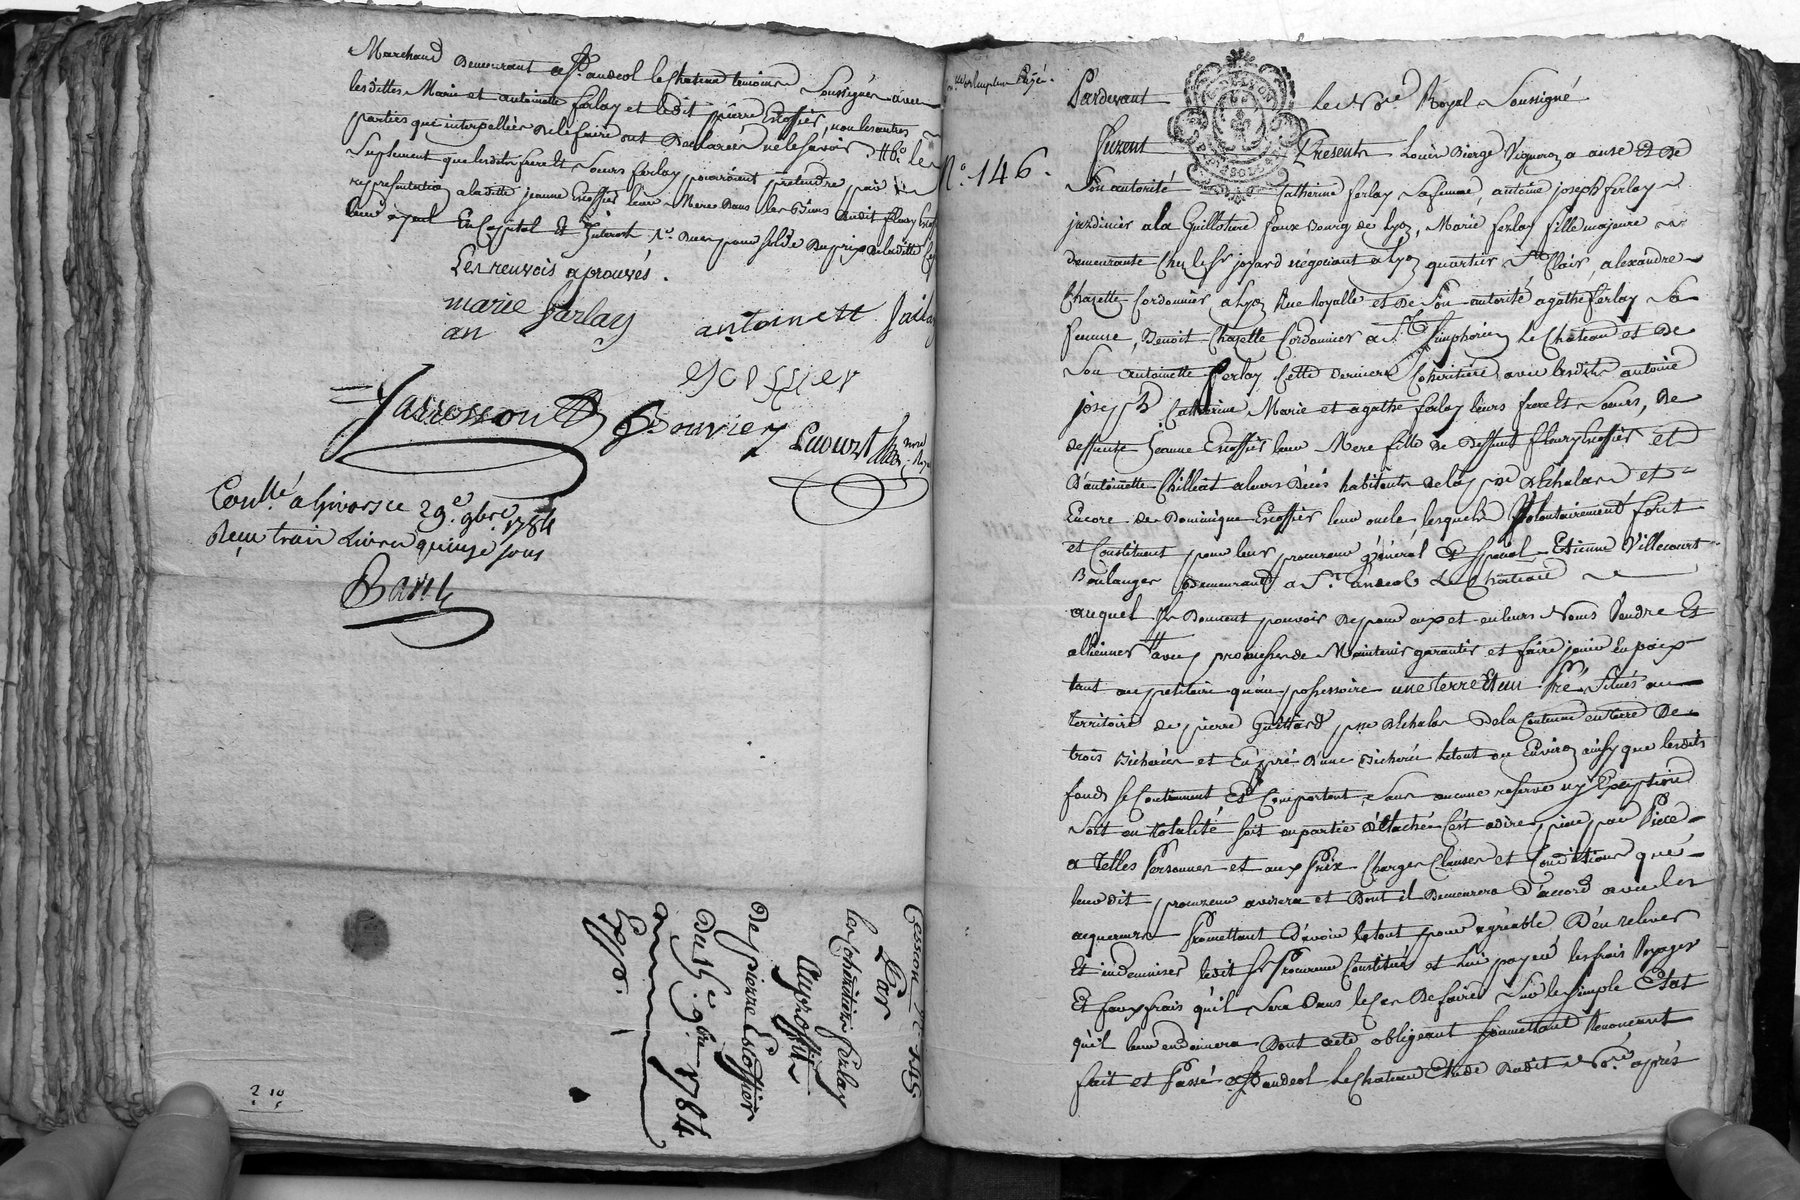 Marchand Demeurant a St. andeol le Chateau temoins Soussignés avec
lesdittes Marie et antoinette ferlay et ledit pierre Escoffier, non les autres
parties que interpellées de le faire ont Declarées ne le scavoir. le
Suplement que lesdits frere et Soeurs ferlay pourroient pretendre par
representation a laditte jeanne Escoffier leur Mere Dans les Biens dudit fleury
leur ayeul En Capital et Interest Du prix de laditte
Les renvois aprouvés.
marie ferlay
an
antoinette
escoffier
Jarrosson
Bouvier
Conllé. a Givors ce 29e. 9bre. 1784
Reçu trois Livres quinze sous
Cession
Par
les Cohéritiers ferlay
au proffit
De pierre Escoffier
Du 9bre 1784
Expe.
2 10
Pardevant le Nore. Royal Soussigné
N.o 146.
Furent Presents Louis Vigneron a anse et de
Son autorité Catherine ferlay Safemme, antoine joseph ferlay
jardinier a la Guillotiere faux Bourg de Lyon, Marie ferlay fille majeure
demeurante Chez le Sr joyard négociant a Lyon quartier St. Clair, alexandre
Chazette Cordonnier a Lyon Rue Royalle et de Son autorité agathe ferlay Sa
femme, Benoit Chazette Cordonnier a St. Simphorien Le Château et de
Son antoinette ferlay Cette derniere Cohéritiere avec lesdits antoine
joseph Catherine Marie et agathe ferlay leurs frere et Soeurs, de
deffunte Jeanne Escoffier leur Mere fille de Deffunt fleury Escoffier et
D'antoinette Chilliat a leurs Décés habitants de la psse. d'Echalas et
Encore de Dominique Escoffier leur oncle, lesquels Volontairement font
et Constituent pour leur procureur général Et special Etienne Villecourt
Boulanger Demeurant a St. andeol Le Château
auquel Ils Donnent pouvoir De pour eux et en leurs Noms Vendre Et
alliener avec promesse de Maintenir garantir et faire jouir En paix
tant au petitoire qu'au possessoire une terre Et un Pré Situés au
territoire de pierre Guittard psse. d'Echalas De la Contenue en terre De
trois Bicherées et En pré d'une Bicherée letout ou Environ ainsy que lesdits
fonds se Contiennent Et Comportent, Sans aucune reserve ny Exception
Soit en totalité soit en partie détachée C'est adire, piece par Piece
a telles Personnes et aux Prix Charges Clauses et Conditions que
leur dit procureur avisera et Dont il Demeurera D'accord avec les
acquereurs Promettant D'avoir letout pour agréable D'en relever
Et indemniser ledit Sr Procureur Constitué et Lui payer les frais Voyages
Et faux frais qu'il Sera Dans le Cas De faire Sur le simple Etat
qu'il leur en donnera Dont acte obligeant soumettant Renonceant
fait et Passé a St. andeol Le Chateau Etude Dudit Nore. après